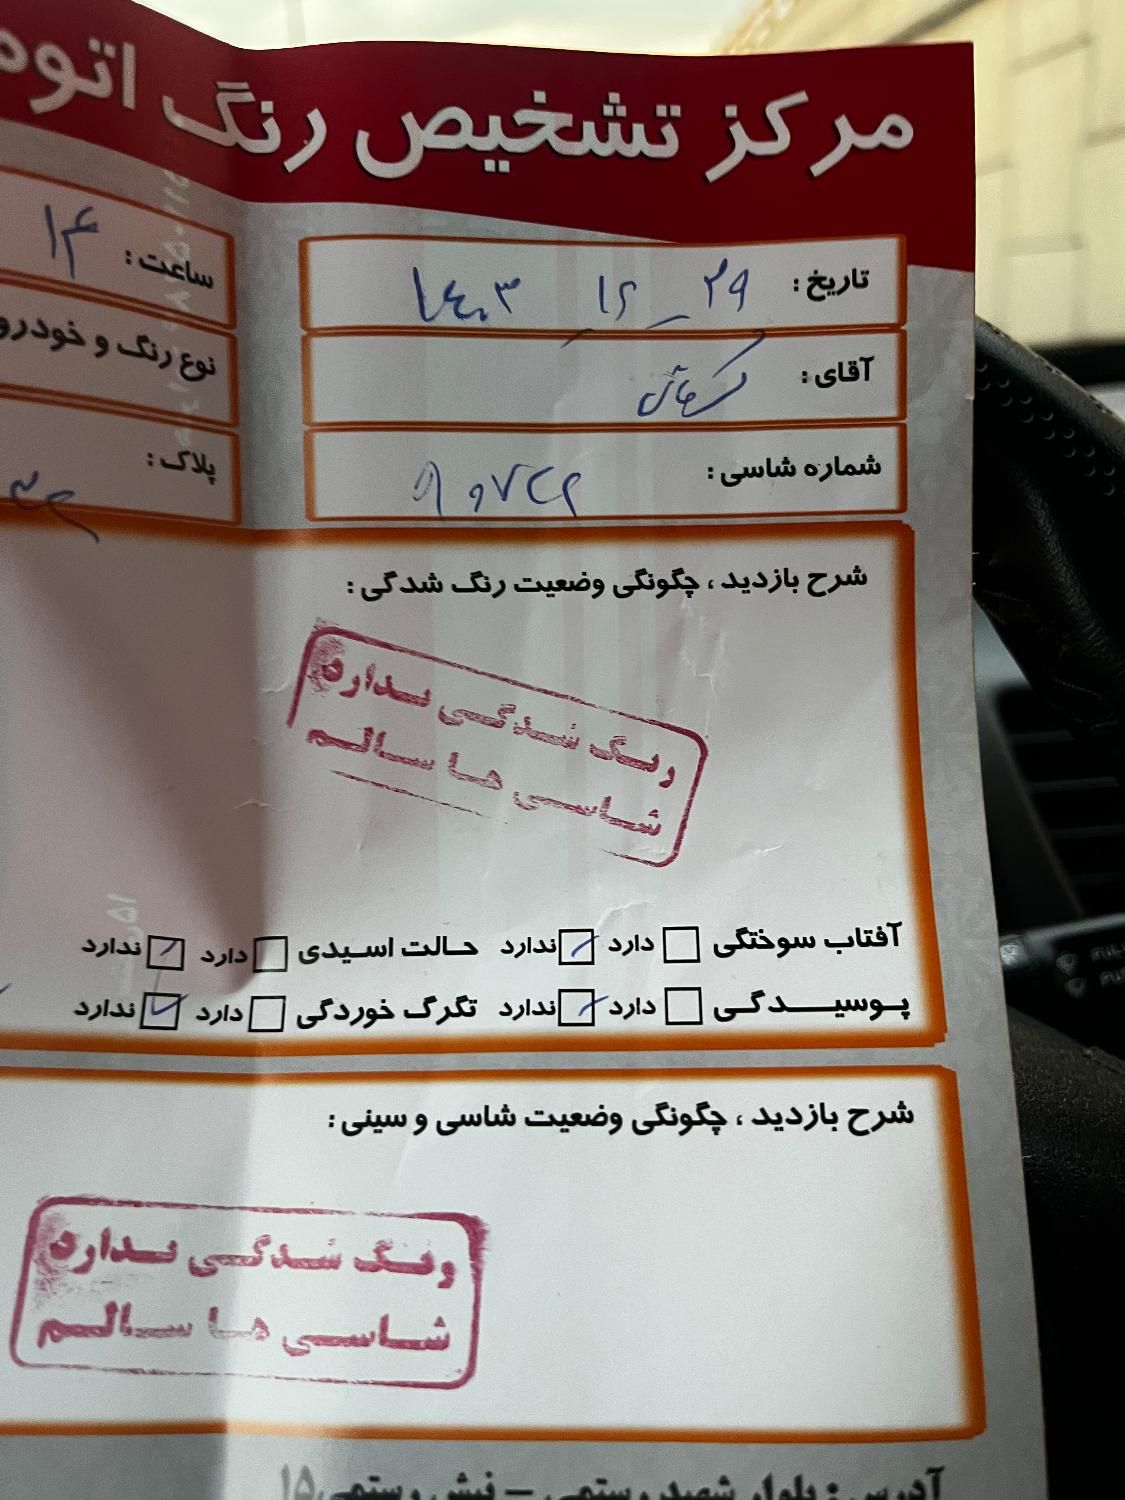 مرکز تشخیص رنگ
تاریخ : ۲۹ _ ۱۲ _ ۱۴۰۳
ساعت : ۱۴
آقای :
نوع رنگ و خودرو
شماره شاسی :
پلاک :
شرح بازدید ، چگونگی وضعیت رنگ شدگی :
رنگ شدگی ندارد
شاسی ها سالم
آفتاب سوختگی دارد ندارد حالت اسیدی دارد ندارد
پوسیدگی دارد ندارد تگرگ خوردگی دارد ندارد
شرح بازدید ، چگونگی وضعیت شاسی و سینی :
رنگ شدگی ندارد
شاسی ها سالم
آدرس : بلوار شهید رستمی - نبش رستمی ۱۵